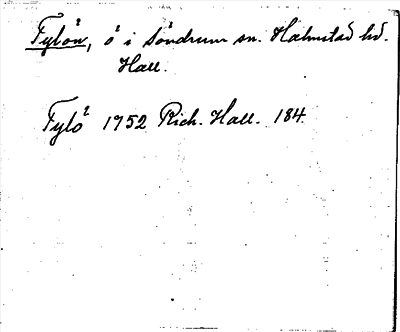 Tylön, ö i Söndrum sn. Halmstad hd.
Hall.
Tylö 1752 Rich. Hall. 184